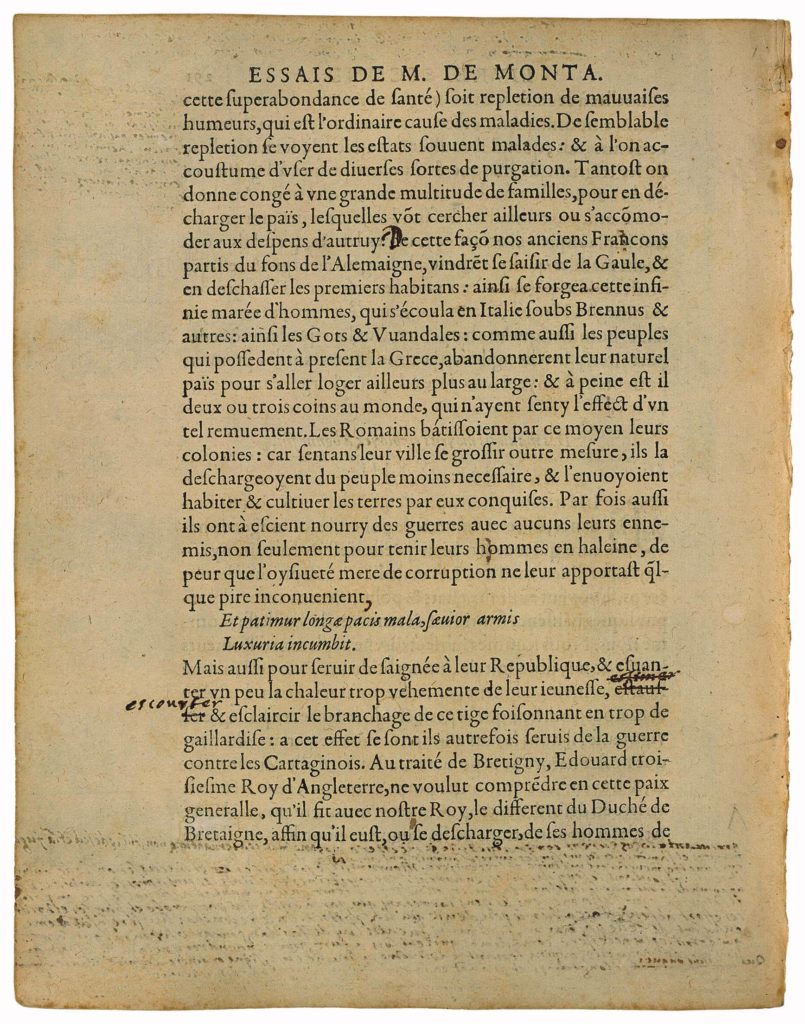 ESSAIS DE M. DE MONTA.
cette ſuperabondance de ſanté) ſoit repletion de mauuaiſes
humeurs,qui eſt l'ordinaire cauſe des maladies.De ſemblable
repletion ſe voyent les eſtats ſouuent malades: & à l'on ac-
couſtume d'vſer de diuerſes ſortes de purgation. Tantoſt on
donne congé à vne grande multitude de familles,pour en dé-
charger le païs, leſquelles võt cercher ailleurs ou s'accõmo-
der aux deſpens d'autruy. De cette façõ nos anciens Francons
partis du fons de l'Alemaigne,vindrẽt ſe ſaiſir de la Gaule,&
en deſchaſſer les premiers habitans: ainſi ſe forgea cette infi-
nie marée d'hommes, qui s'écoula en Italie ſoubs Brennus &
autres: ainſi les Gots & Vuandales: comme auſſi les peuples
qui poſſedent à preſent la Grece,abandonnerent leur naturel
païs pour s'aller loger ailleurs plus au large: & à peine eſt il
deux ou trois coins au monde, qui n'ayent ſenty l'effect d'vn
tel remuement.Les Romains bâtiſſoient par ce moyen leurs
colonies: car ſentans leur ville ſe groſſir outre meſure, ils la
deſchargeoyent du peuple moins neceſſaire, & l'enuoyoient
habiter & cultiuer les terres par eux conquiſes. Par fois auſſi
ils ont à eſcient nourry des guerres auec aucuns leurs enne-
mis,non ſeulement pour tenir leurs hommes en haleine, de
peur que l'oyſiueté mere de corruption ne leur apportaſt q̃l-
que pire inconuenient,
Et patimur longæ pacis mala,ſæuior armis
Luxuria incumbit.
Mais auſſi pour ſeruir de ſaignée à leur Republique,& eſuan-
ter vn peu la chaleur trop vehemente de leur ieuneſſe, eſtauſ-
eſcourter
ſer & eſclaircir le branchage de ce tige foiſonnant en trop de
gaillardiſe: a cet effet ſe ſont ils autrefois ſeruis de la guerre
contre les Cartaginois. Au traité de Bretigny, Edouard troi-
ſieſme Roy d'Angleterre,ne voulut comprẽdre en cette paix
generalle, qu'il fit auec noſtre Roy,le different du Duché de
Bretaigne, affin qu'il euſt,ou ſe deſcharger,de ſes hommes de